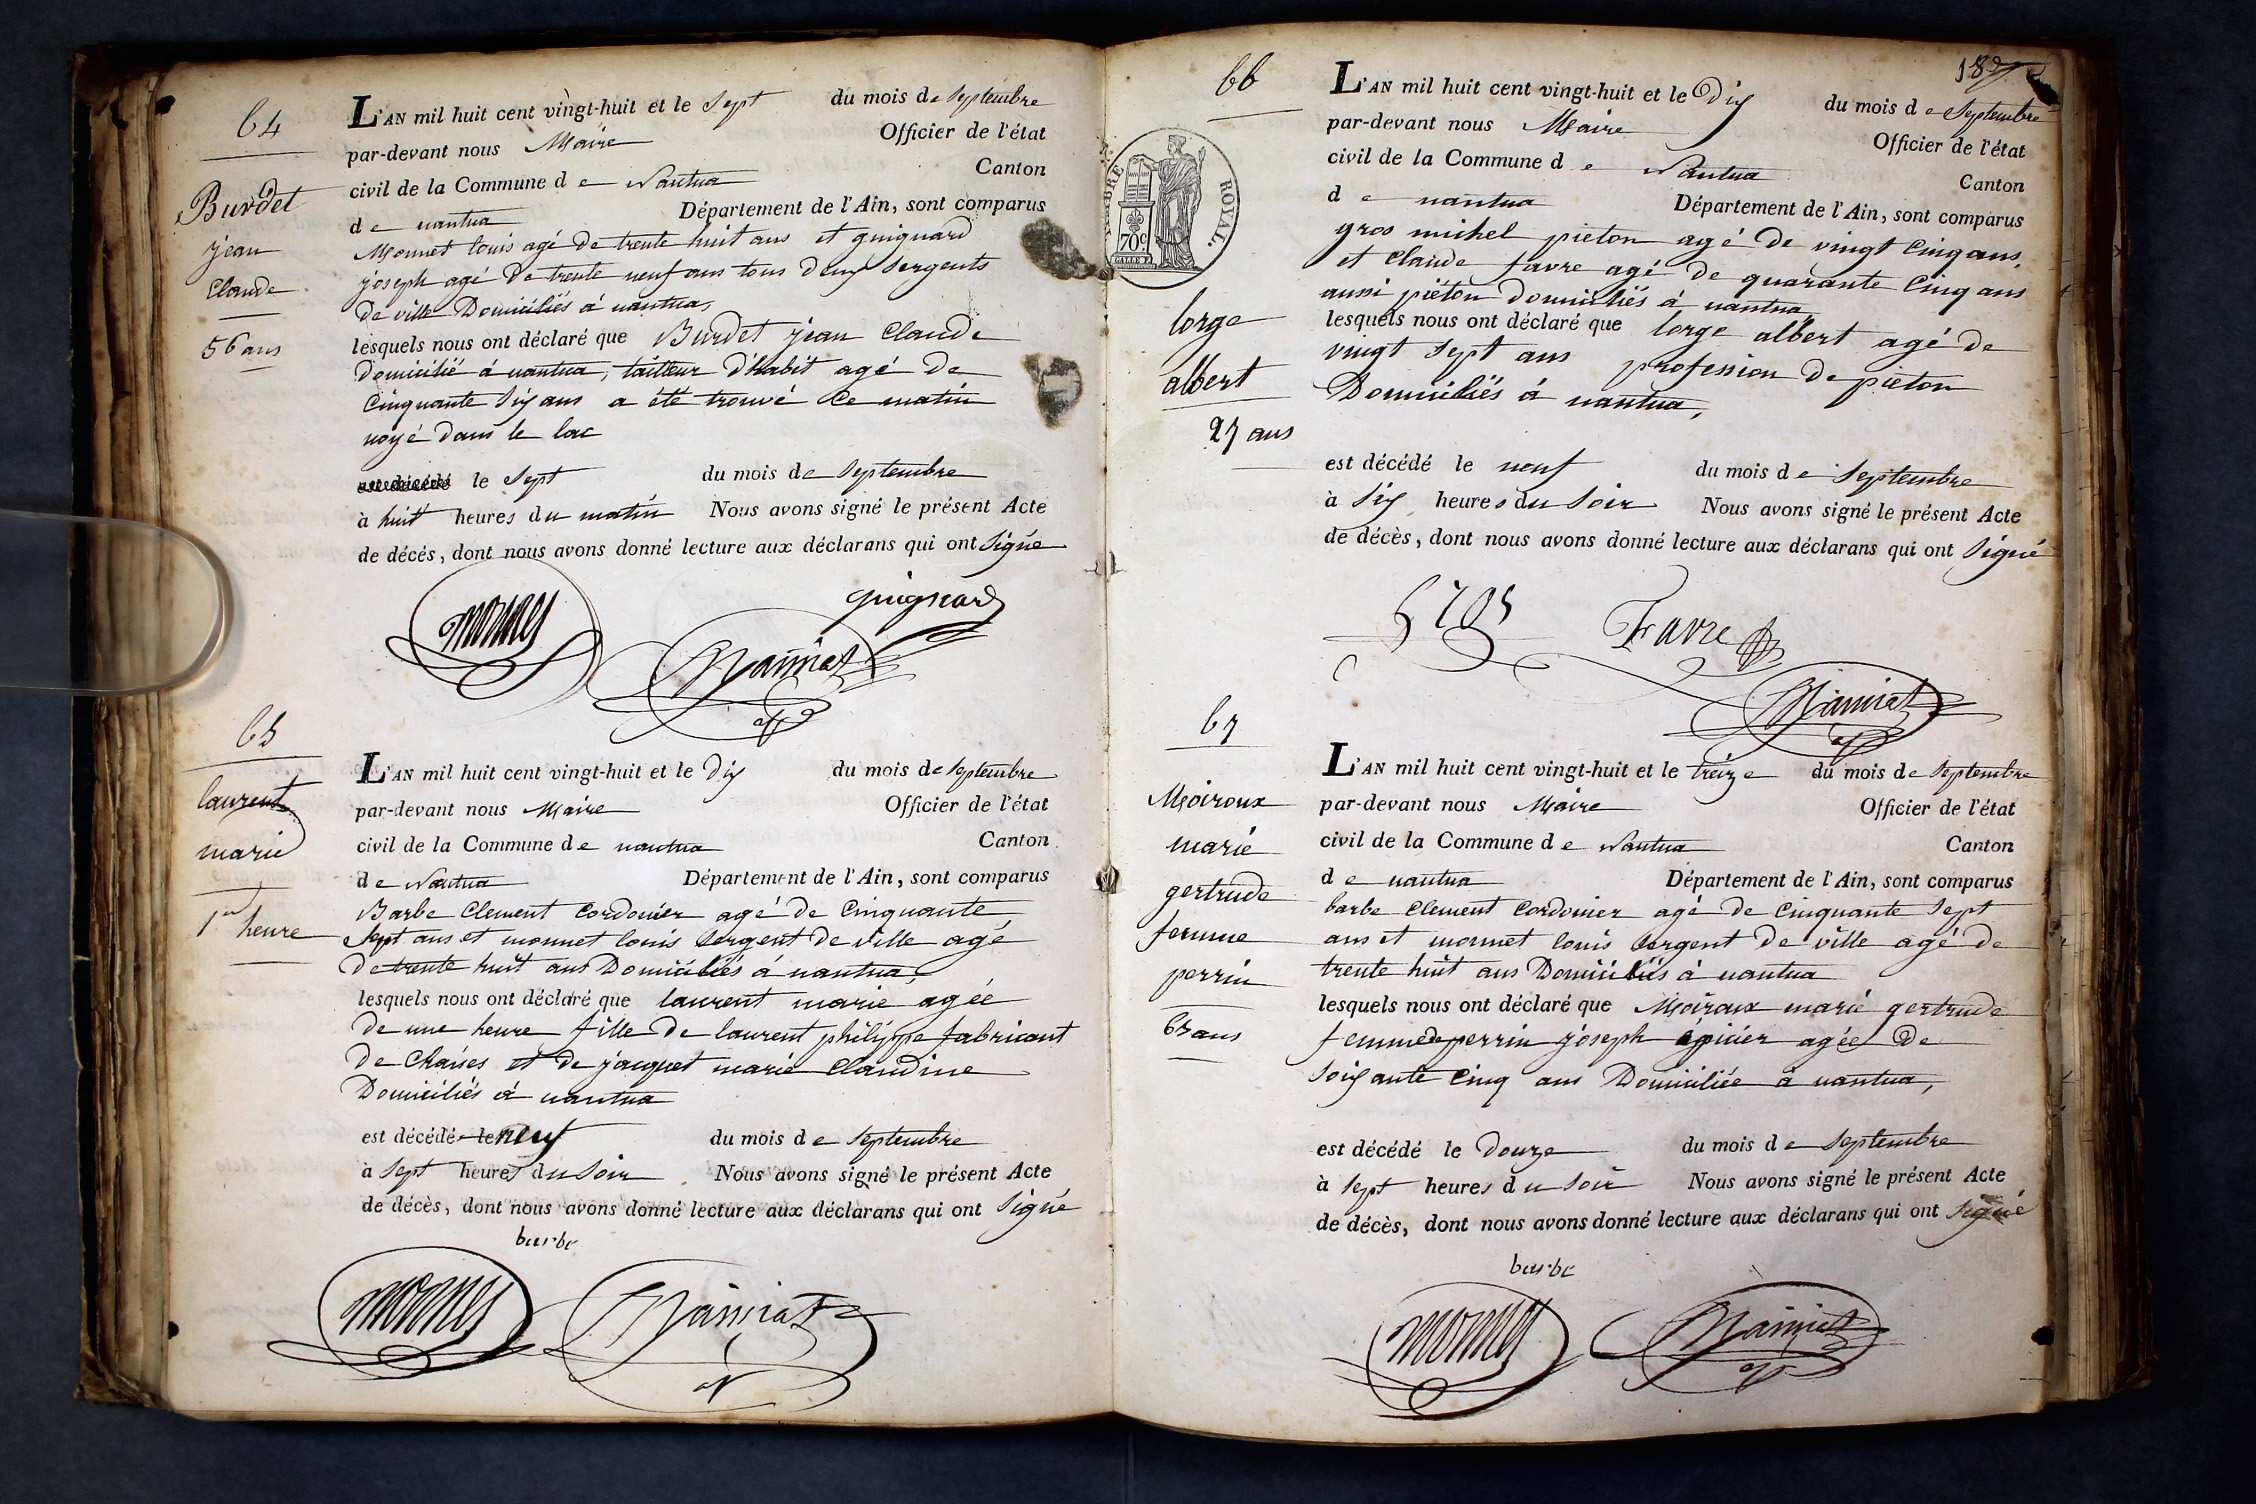 64
Burdet
jean
Claude
56 ans
L'AN mil huit cent vingt-huit et le Sept du mois de Septembre
par-devant nous Maire Officier de l'état
civil de la Commune de Nantua Canton
de nantua Département de l'Ain, sont comparus
Monnet louis agé de trente huit ans et guignard
joseph agé de trente neuf ans tous deux Sergents
de ville Domiciliés à nantua,
lesquels nous ont déclaré que Burdet jean Claude
domicilié à nantua, tailleur d'habit agé de
Cinquante Six ans a été trouvé ce matin
noyé dans le lac
est décédé le Sept du mois de Septembre
à huit heures du matin Nous avons signé le présent Acte
de décés, dont nous avons donné lecture aux déclarans qui ont Signé
guignard
monnet
65
laurent
marie
1re heure
L'AN mil huit cent vingt-huit et le Dix du mois de Septembre
par-devant nous Maire Officier de l'état
civil de la Commune de nantua Canton
de Nantua Département de l'Ain, sont comparus
Barbe Clement Cordonier agé de Cinquante
Sept ans et monnet louis Sergent de ville agé
de trente huit ans Domiciliés à nantua,
lesquels nous ont déclaré que laurent marie agée
de une heure fille de laurent philippe fabricant
de Chaises et de jacquet marie Claudine
Domiciliés à nantua
est décédé le neuf du mois de Septembre
à Sept heures du Soir Nous avons signé le présent Acte
de décès, dont nous avons donné lecture aux déclarans qui ont Signé
barbe
monnet
187
66
TIMBRE ROYAL.
70c
lorge
albert
27 ans
L'AN mil huit cent vingt-huit et le Dix du mois de Septembre
par-devant nous Maire Officier de l'état
civil de la Commune de Nantua Canton
de nantua Département de l'Ain, sont comparus
gros michel pieton agé de vingt Cinq ans,
et Claude favre agé de quarante Cinq ans
aussi piéton domiciliés à nantua,
lesquels nous ont déclaré que lorge albert agé de
vingt Sept ans profession de pieton
Domiciliés à nantua,
est décédé le neuf du mois de Septembre
à Six heures du Soir Nous avons signé le présent Acte
de décès, dont nous avons donné lecture aux déclarans qui ont Signé
gros
Favre
67
Moiroux
marie
gertrude
femme
perrin
65 ans
L'AN mil huit cent vingt-huit et le treize du mois de Septembre
par-devant nous Maire Officier de l'état
civil de la Commune de Nantua Canton
de nantua Département de l'Ain, sont comparus
barbe Clement Cordonier agé de Cinquante Sept
ans et monnet louis Sergent de ville agé de
trente huit ans Domiciliés à nantua
lesquels nous ont déclaré que Moiroux marie gertrude
femme de perrin joseph épicier agée de
Soixante Cinq ans Domiciliée à nantua,
est décédé le Douze du mois de Septembre
à Sept heures du Soir Nous avons signé le présent Acte
de décès, dont nous avons donné lecture aux déclarans qui ont Signé
barbe
monnet